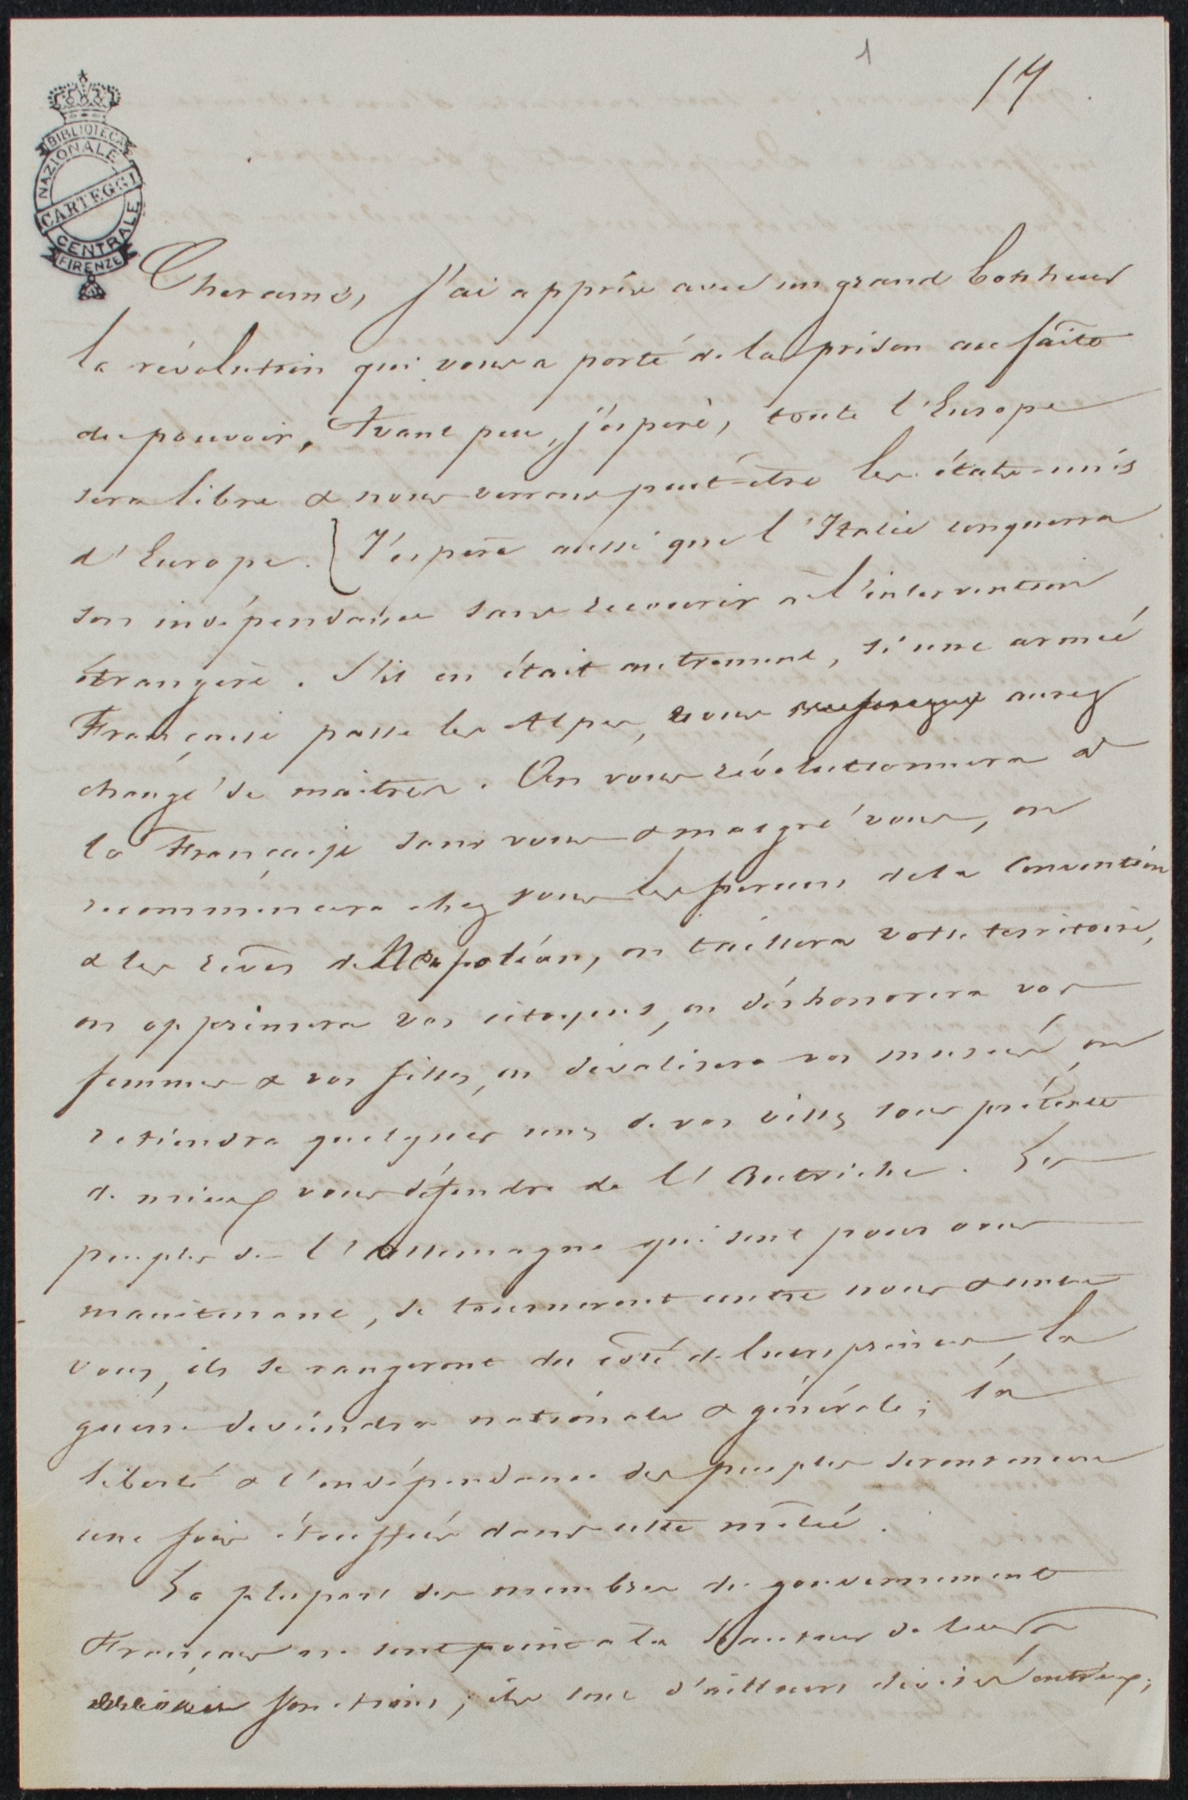 1
17
BIBLIOTECA
NAZIONALE
CARTEGGI
CENTRALE
FIRENZE
Cher ami, J'ai appris avec un grand bonheur
la révolution qui vous a porté de la prison au faîte
du pouvoir. Avant peu, j'espère, toute l'Europe
sera libre & nous verrons peut-être les états-unis
d'Europe. } J'espère aussi que l'Italie conquerra
son indépendance sans recourir à l'intervention
étrangère. S'il en était autrement, si une armée
Française passe les Alpes, vous aurez
changé de maîtres. On vous révolutionnera à
la Française sans vous & malgré vous, on
recommencera chez vous les fureurs de la Convention
& les rêves de Napoléon, on taillera votre territoire,
on opprimera vos citoyens, on déshonorera vos
femmes & vos filles, on dévalisera vos musées, on
retiendra quelques unes de vos villes sous prétexte
de mieux vous défendre de l'Autriche. Les
peuples de l'Allemagne qui sont pour vous
maintenant, se tourneront contre nous & contre
vous, ils se rangeront du côté de leurs princes, la
guerre deviendra nationale & générale; la
liberté & l'indépendance des peuples seront encore
une fois étouffées dans cette mêlée.
La plupart des membres du gouvernement
Français ne sont point à la hauteur de leurs
fonctions; ils sont d'ailleurs divisés entr'eux;